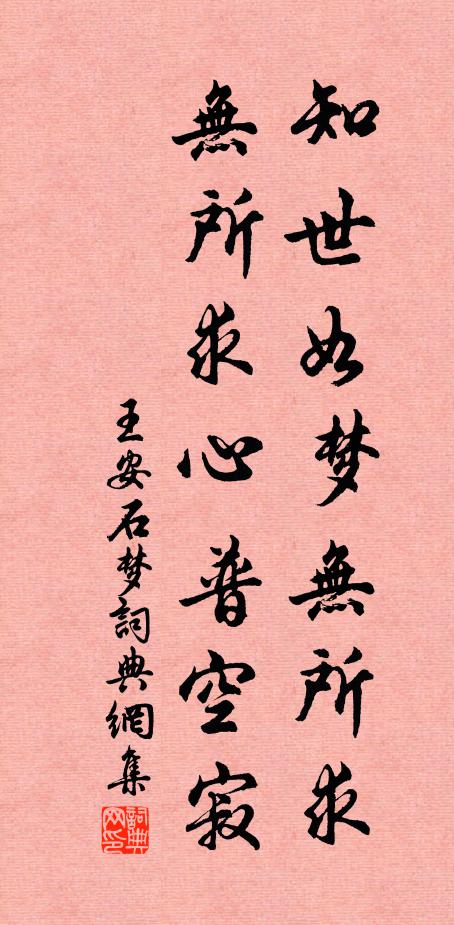 知世如梦無所求
無所求心普空寂
王安石梦詞典網集
詞典网印